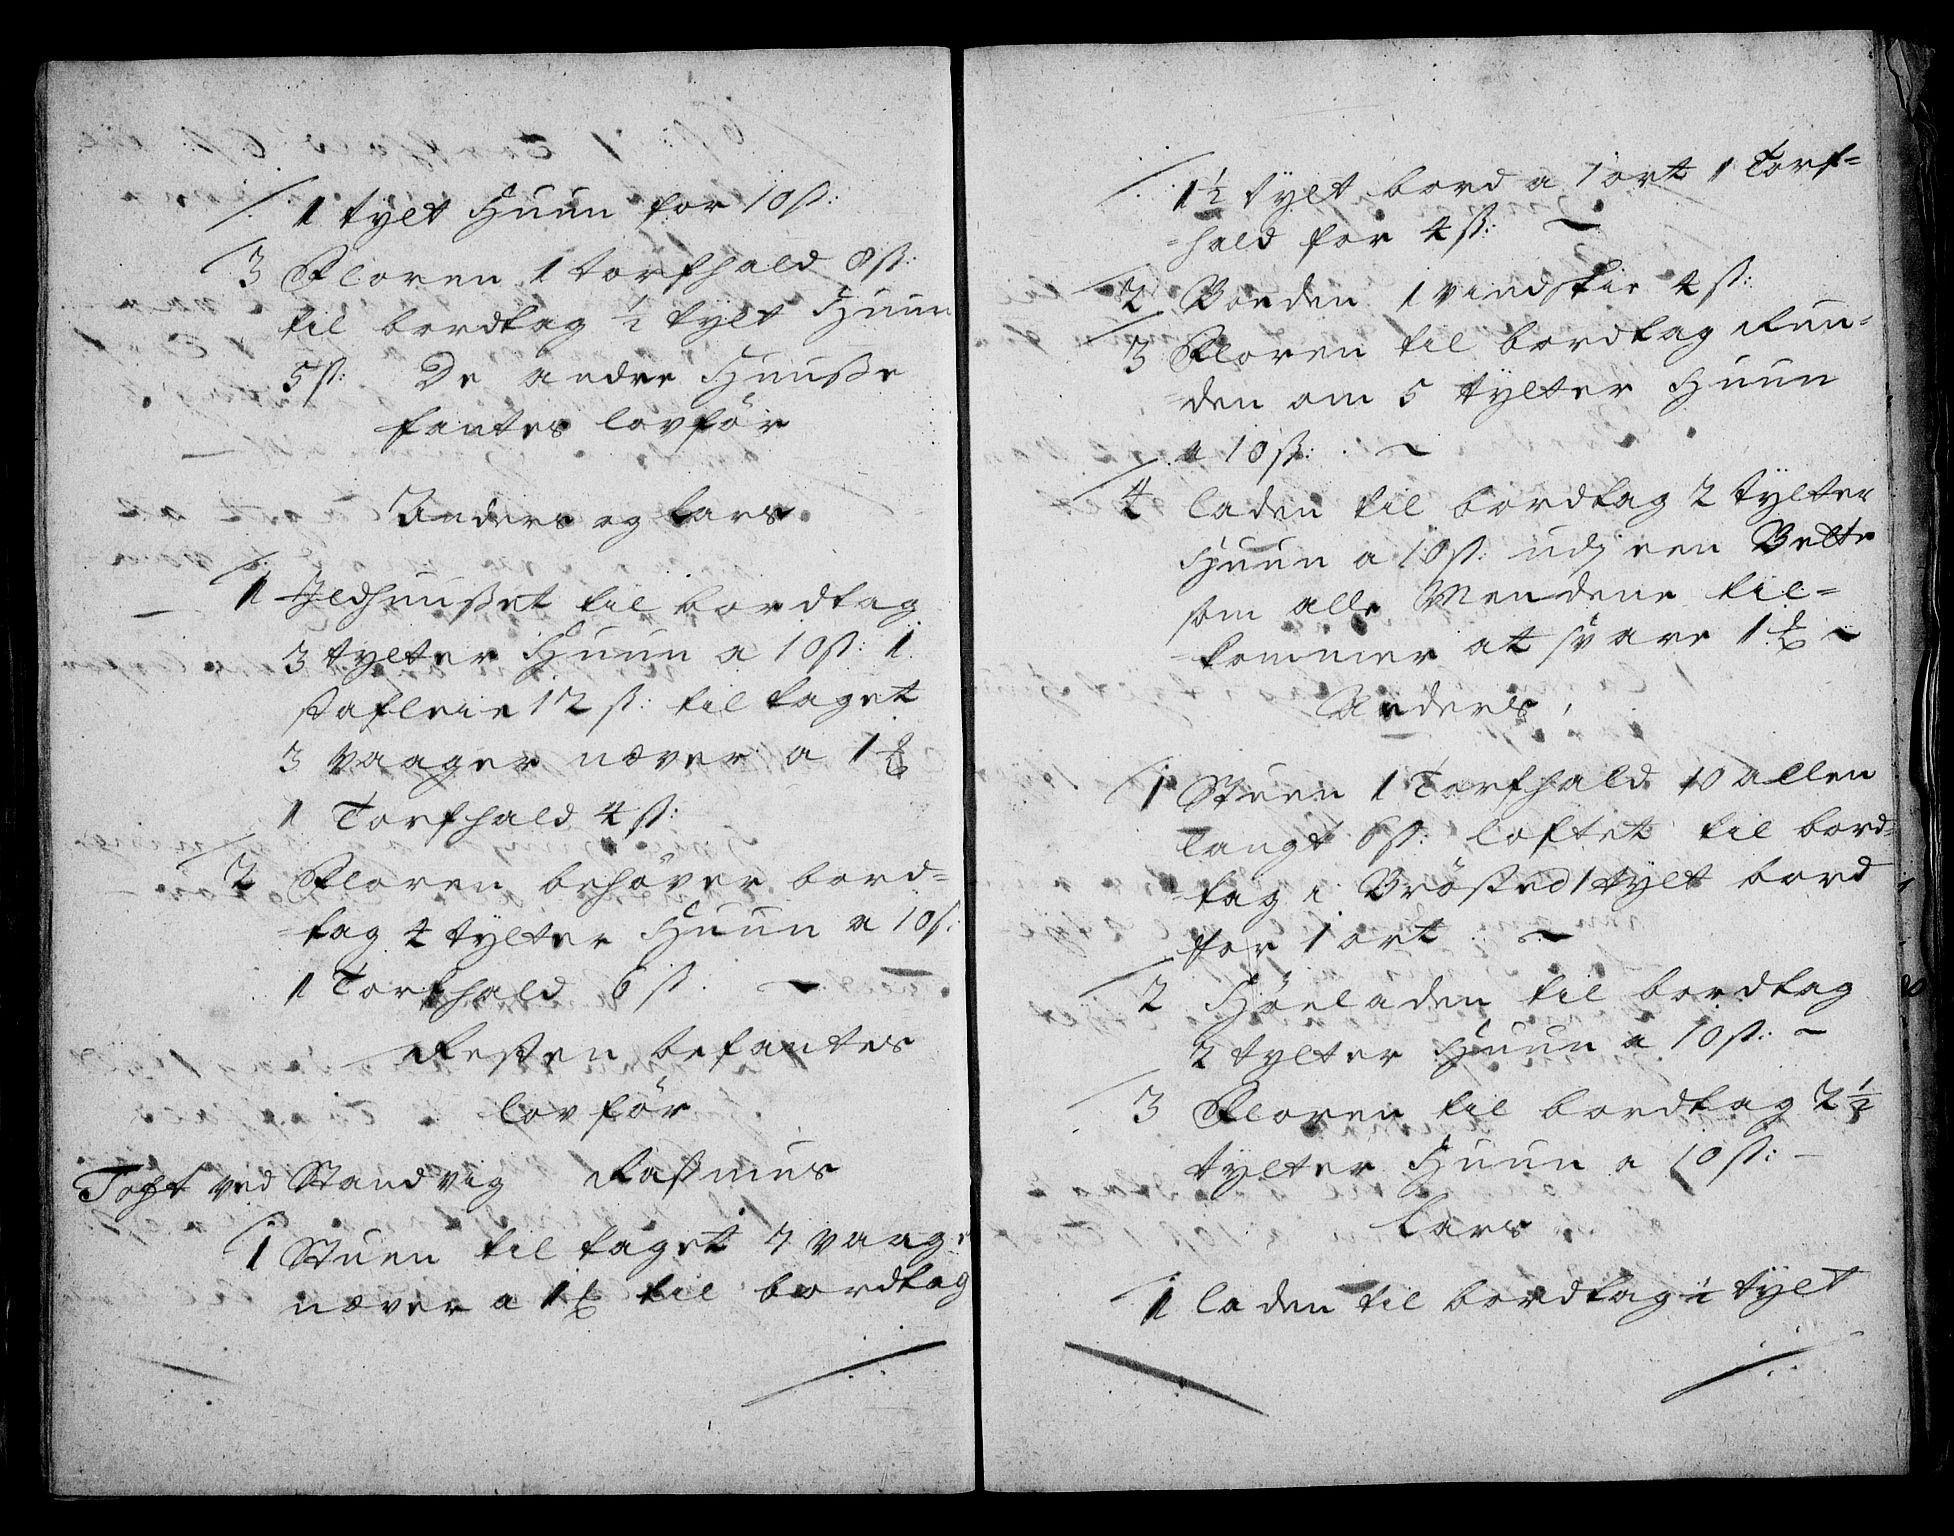 1 tylt Huun for 10 s:
3 Floren 1 torfhald 8 s:
til bordtag ½ tylt Huun
5 s: De andre Huusse
fantes lovfør
Anders og Lars
1 Ildhuusset til bordtag
3 tylter Huun a 10 s: 1
stafleie 12 s: til taget
3 vaager næver a 1
1 Torfhald 4 s:
2 Floren behøver bord=
=tag 4 tylter Huun a 10 s:
1 Torfhald 6 s:
Resten befantes
lovfør
Toft ved Standvig Rasmus
1 Stuen til taget 7 vaage
næver a 1 til bordtag
1½ tylt bord a 1 ort 1 Torf=
=hald for 4 s:
2 Boeden 1 vindskie 4 s:
3 Floren til bordtag run=
=den om 5 tylter Huun
a 10 s:
4 laden til bordtag 2 tylter
Huun a 10 s: udj een Belte
som alle Mendene til=
=kommer at svare 1
Anders,
1 Stuen 1 Torfhald 10 allen
langt 6 s: loftet til bord=
=tag i Brøsted 1 tylt bord
for 1 ort
2 Høeladen til bordtag
2 tylter Huun a 10 s:
3 Floren til bordtag 2½
tylter Huun a 10 s:
Lars
1 laden til bordtag 1 tylt